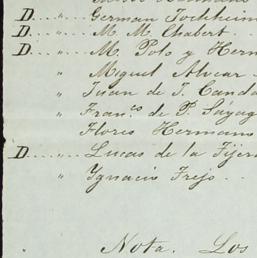 D.... " German
D.... " M. M. Chabert.
D.... " M. Polo y Herm
" Miguel Alvear..
" Juan de J. Canda
" Fran.co de P. Sáyag
" Flores Hermanos
D.... " Lucas de la Tijer
" Ygnacio Trejo...
Nota. Los